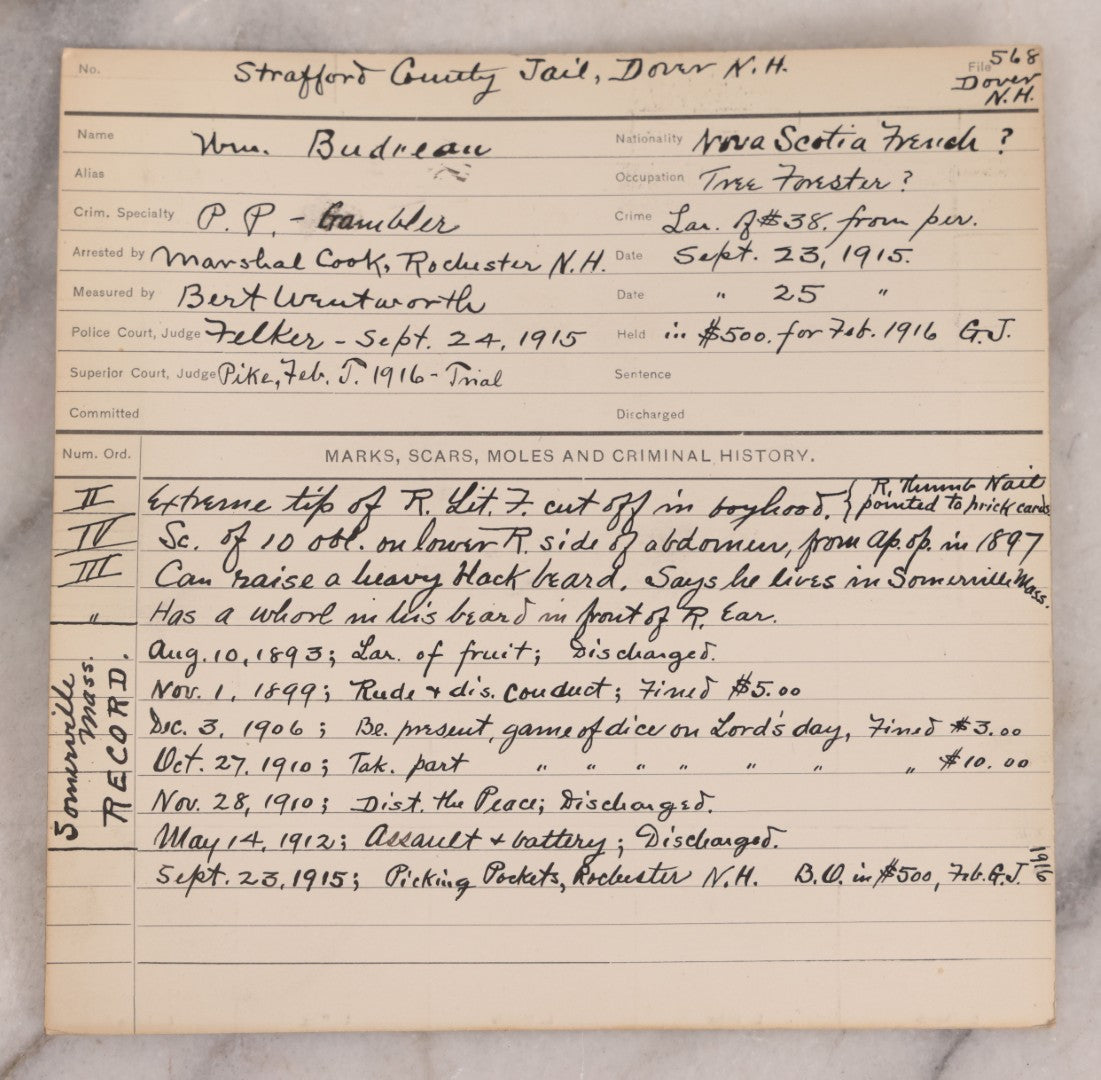 No. Strafford County Jail, Dover N.H. File 568
Dover
N.H.
Name Wm. Budreau Nationality Nova Scotia French ?
Alias Occupation Tree Forester ?
Crim. Specialty P. P. - Gambler Crime Lar. of $38. from per.
Arrested by Marshal Cook, Rochester N.H. Date Sept. 23, 1915.
Measured by Bert Wentworth Date " 25 "
Police Court, Judge Felker - Sept. 24, 1915 Held in $500. for Feb. 1916 G.J.
Superior Court, Judge Pike, Feb. T. 1916 - Trial Sentence
Committed Discharged
Num. Ord. MARKS, SCARS, MOLES AND CRIMINAL HISTORY.
II Extreme tip of R. Lit. F. cut off in boyhood. { R. Thumb Nail
pointed to prick cards
IV Sc. of 10 obl. on lower R. side of abdomen, from ap. op. in 1897
III Can raise a heavy black beard. Says he lives in Somerville Mass.
" Has a whorl in his beard in front of R. Ear.
Somerville
Mass.
RECORD.
Aug. 10, 1893; Lar. of fruit; Discharged.
Nov. 1, 1899; Rude + dis. conduct; Fined $5.00
Dec. 3, 1906; Be. present, game of dice on Lord's day, Fined $3.00
Oct. 27, 1910; Tak. part " " " " " " " $10.00
Nov. 28, 1910; Dist. the Peace; Discharged.
May 14, 1912; Assault + battery; Discharged.
Sept. 23, 1915; Picking Pockets, Rochester N.H. B.O. in $500, Feb. G.J. 1916